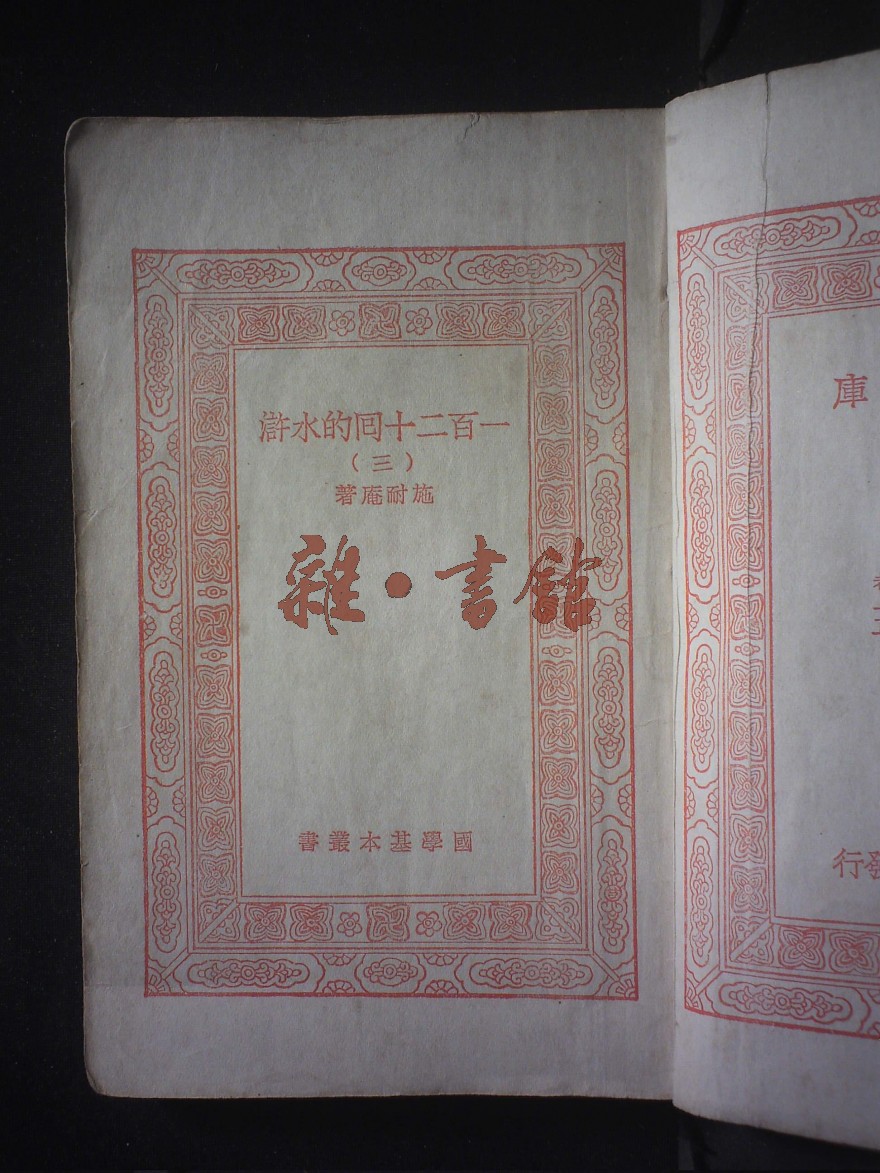 庫
發行
一百二十囘的水滸
（三）
施耐庵著
雜·書館
國學基本叢書